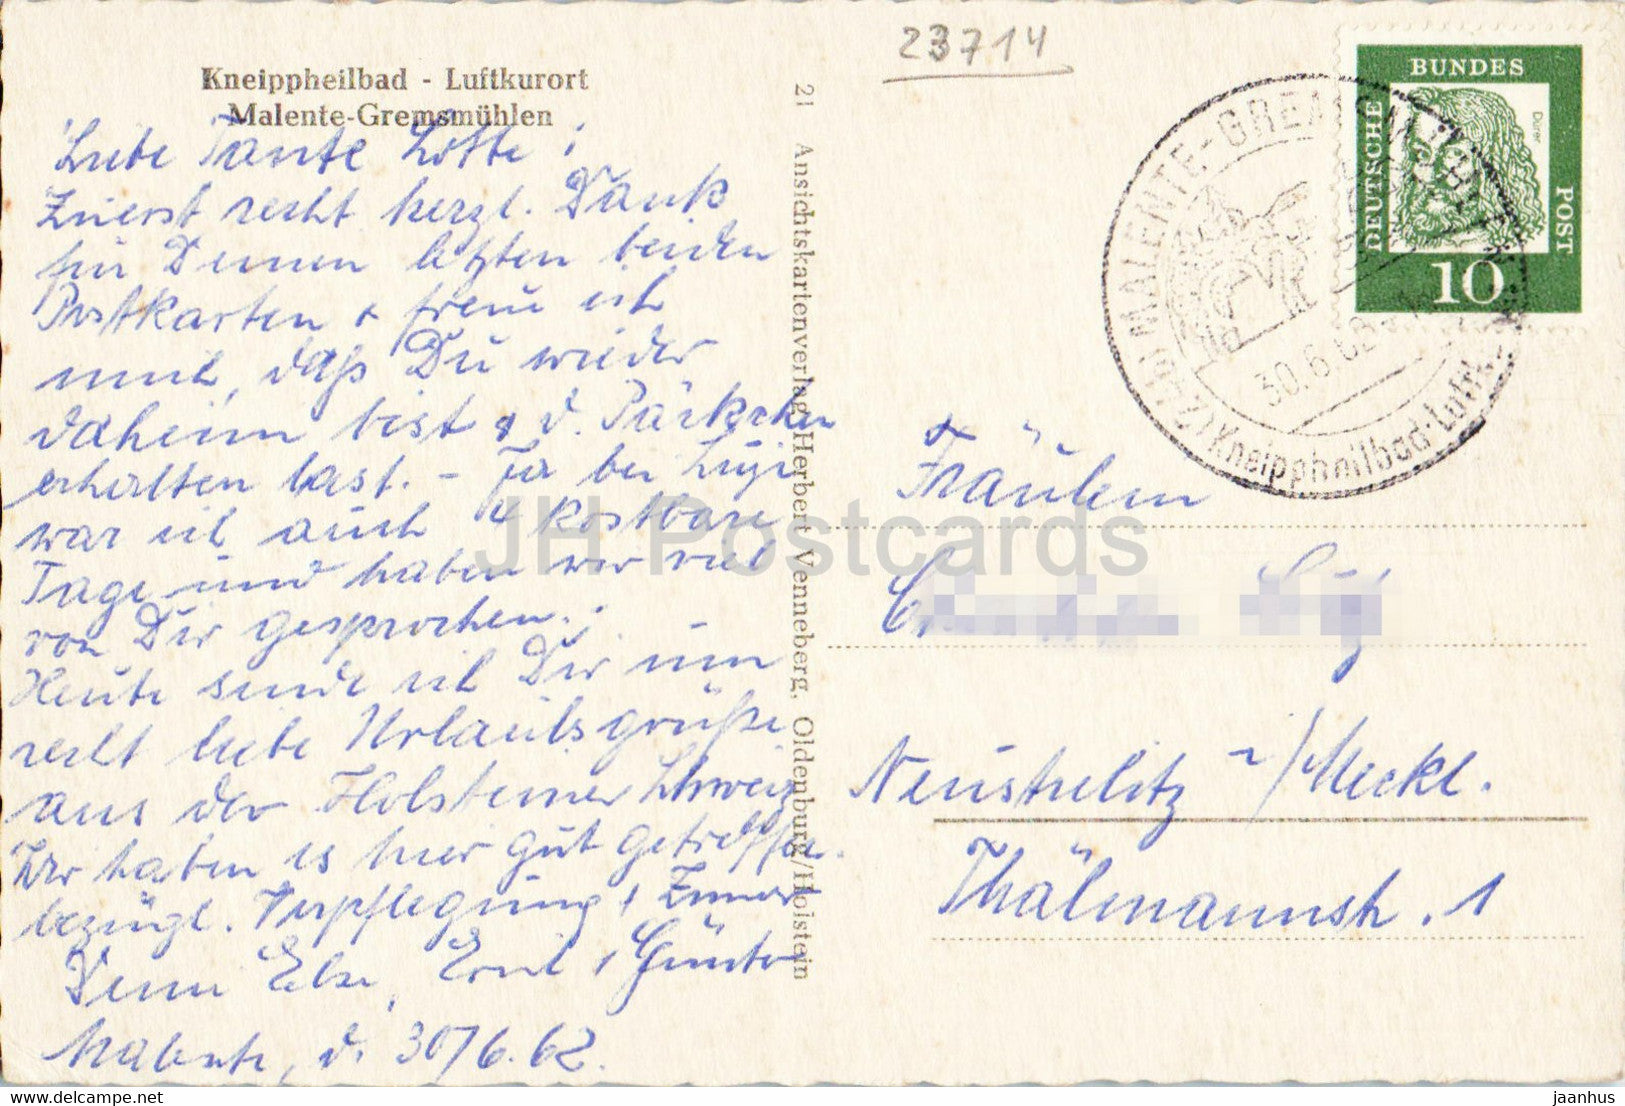 Kneippheilbad - Luftkurort
Malente-Gremsmühlen
Liebe Tante Lotte!
Zuerst recht herzl. Dank
für Deinen letzten beiden
Postkarten + freue ich
mich, daß Du wieder
daheim bist + d. Päckchen
erhalten hast. - Ja bei
war ich auch 4 kostbare
Tage und haben wir viel
von Dir gesprochen.
Heute sende ich Dir nun
recht liebe Urlaubsgrüße
aus der Holsteiner Schweiz
Wir haben es hier gut getroffen
bezügl. Verpflegung + Zimmer
Deine Else, Erni + Günter
Malente, d. 30/6.62.
21 Ansichtskartenverlag Herbert Venneberg, Oldenburg/Holstein
23714
BUNDES
DEUTSCHE
POST
Dürer
10
(24b) MALENTE-GREMSMÜHLEN
30.6.62
Kneippheilbad-Luftk
Fräulein
Neustrelitz i/Meckl.
Thälmannstr. 1
JH Postcards
www.delcampe.net
jaanhus